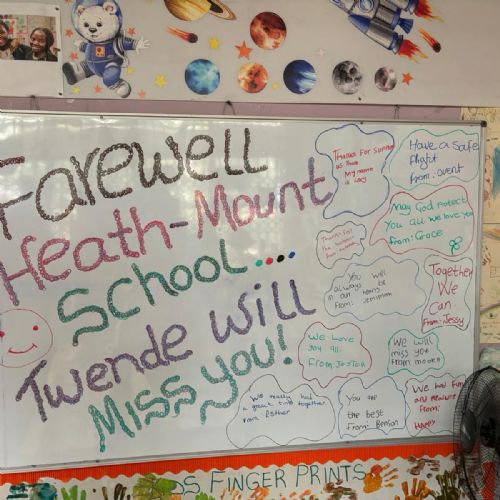 Farewell
Heath-Mount
School....
Twende Will
Miss you!
Thanks For
us
My name
is
Have a Safe
flight
From:
May God Protect
You all we love you
From: Grace
Thanks for
You will
always be
in our
From: Jemimah
Together
We
Can
From: Jessy
We Love
you all
From: Joston
We will
miss you
From
We really had
a great time together
From Esther
You are
the best
From: Benson
We had Fun
and
From:
Happy
S FINGER PRINTS